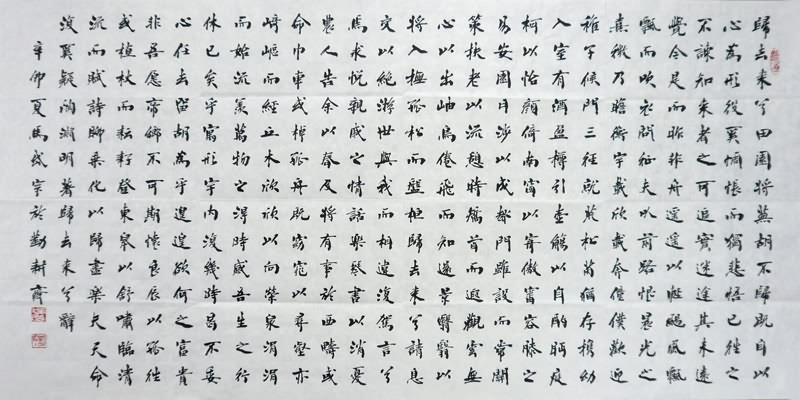 歸去來兮田園將蕪胡不歸既自以
心為形役奚惆悵而獨悲悟已往之
不諫知來者之可追實迷途其未遠
覺今是而昨非舟遙遙以輕颺風飄
飄而吹衣問征夫以前路恨晨光之
熹微乃瞻衡宇載欣載奔僮僕歡迎
稚子候門三徑就荒松菊猶存攜幼
入室有酒盈樽引壺觴以自酌眄庭
柯以怡顏倚南窗以寄傲審容膝之
易安園日涉以成趣門雖設而常關
策扶老以流憩時矯首而遐觀雲無
心以出岫鳥倦飛而知還景翳翳以
將入撫孤松而盤桓歸去來兮請息
交以絕游世與我而相違復駕言兮
焉求悅親戚之情話樂琴書以消憂
農人告余以春及將有事於西疇或
命巾車或棹孤舟既窈窕以尋壑亦
崎嶇而經丘木欣欣以向榮泉涓涓
而始流羨萬物之得時感吾生之行
休已矣乎寓形宇內復幾時曷不委
心任去留胡為乎遑遑欲何之富貴
非吾愿帝鄉不可期懷良辰以孤往
或植杖而耘耔登東皋以舒嘯臨清
流而賦詩聊乘化以歸盡樂夫天命
復奚疑陶淵明著歸去來兮辭
辛卯夏馬於勤耕齋